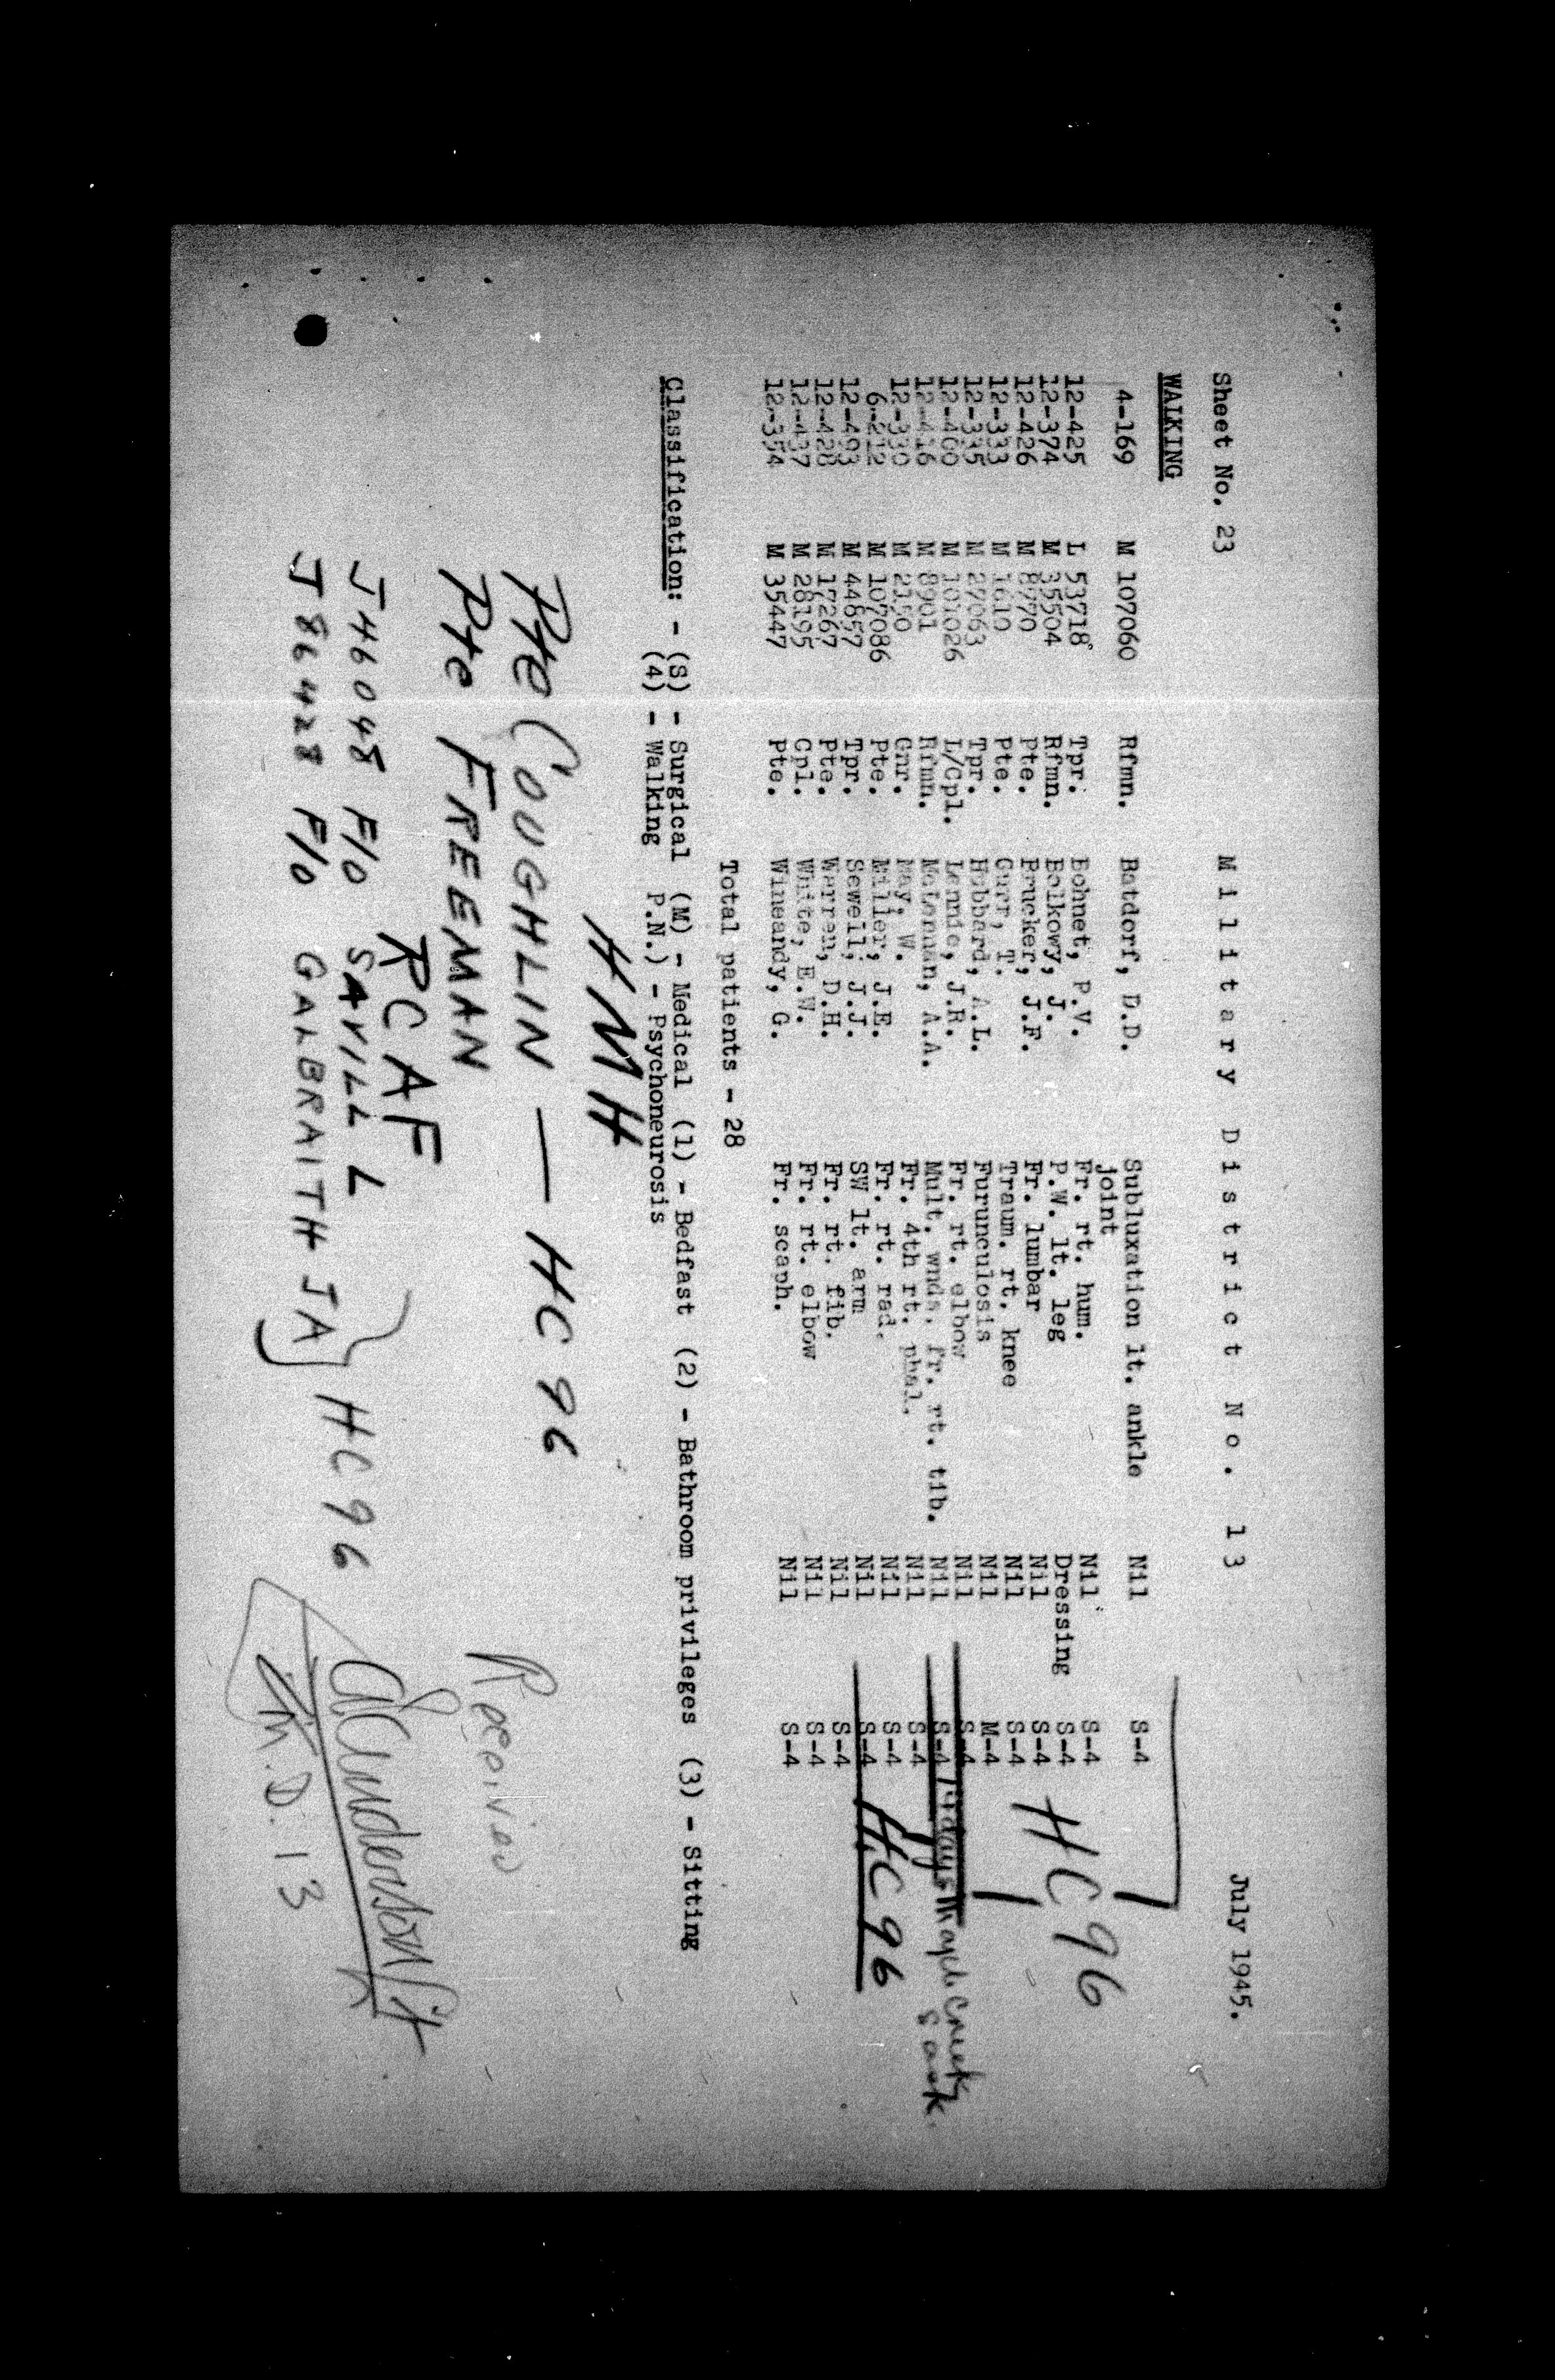 Sheet No. 23 Military District No. 13 July 1945.
WALKING
4-169 M 107060 Rfmn. Batdorf, D.D. Subluxation lt. ankle Nil S-4
joint
12-425 L 53718 Tpr. Bohnet, P.V. Fr. rt. hum. Nil S-4
12-374 M 35504 Rfmn. Bolkowy, J. P.W. lt. leg Dressing S-4
12-426 M 8770 Pte. Brucker, J.F. Fr. lumbar Nil S-4 HC 96
12-333 M 1610 Pte. Gurr, T. Traum. rt. knee Nil S-4
12-335 M 27063 Tpr. Hubbard, A.L. Furunculosis Nil M-4
12-400 M 101026 L/Cpl. Lennie, J.R. Fr. rt. elbow Nil S-4
12-416 M 8901 Rfmn. McLennan, A.A. Mult. wnds. fr. rt. tib. Nil S-4 days Maple Creek
Sask.
12-330 M 2150 Gnr. May, W. Fr. 4th rt. phal. Nil S-4
6-212 M 107086 Pte. Miller, J.E. Fr. rt. rad. Nil S-4
12-493 M 44857 Tpr. Sewell, J.J. SW lt. arm Nil S-4 HC 96
12-428 M 17267 Pte. Warren, D.H. Fr. rt. fib. Nil S-4
12-437 M 28195 Cpl. White, E.W. Fr. rt. elbow Nil S-4
12-354 M 35447 Pte. Wineandy, G. Fr. scaph. Nil S-4
Total patients - 28
Classification: - (S) - Surgical (M) - Medical (1) - Bedfast (2) - Bathroom privileges (3) - Sitting
(4) - Walking P.N.) - Psychoneurosis
HMH
Pte COUGHLIN — HC 96
Pte FREEMAN
Received
RCAF
J46048 F/O SAVILL L
J86428 F/O GALBRAITH JA } HC 96
M.D. 13